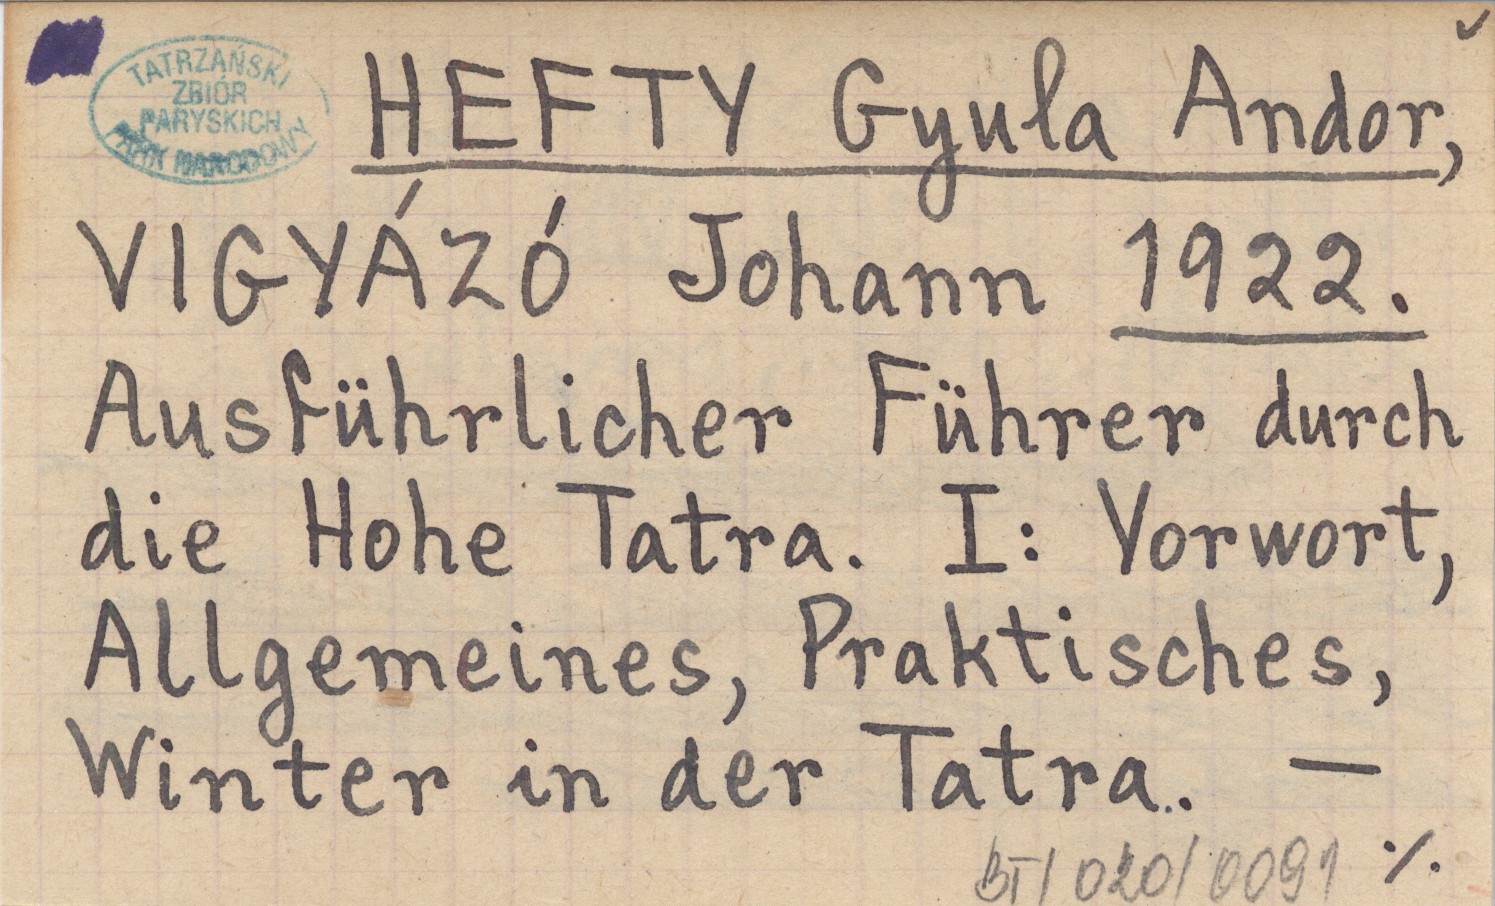 TATRZAŃSKI
ZBIÓR
PARYSKICH
PARK NARODOWY
HEFTY Gyula Andor,
VIGYÁZÓ Johann 1922.
Ausführlicher Führer durch
die Hohe Tatra. I: Vorwort,
Allgemeines, Praktisches,
Winter in der Tatra. —
BT/020/0091 ./.